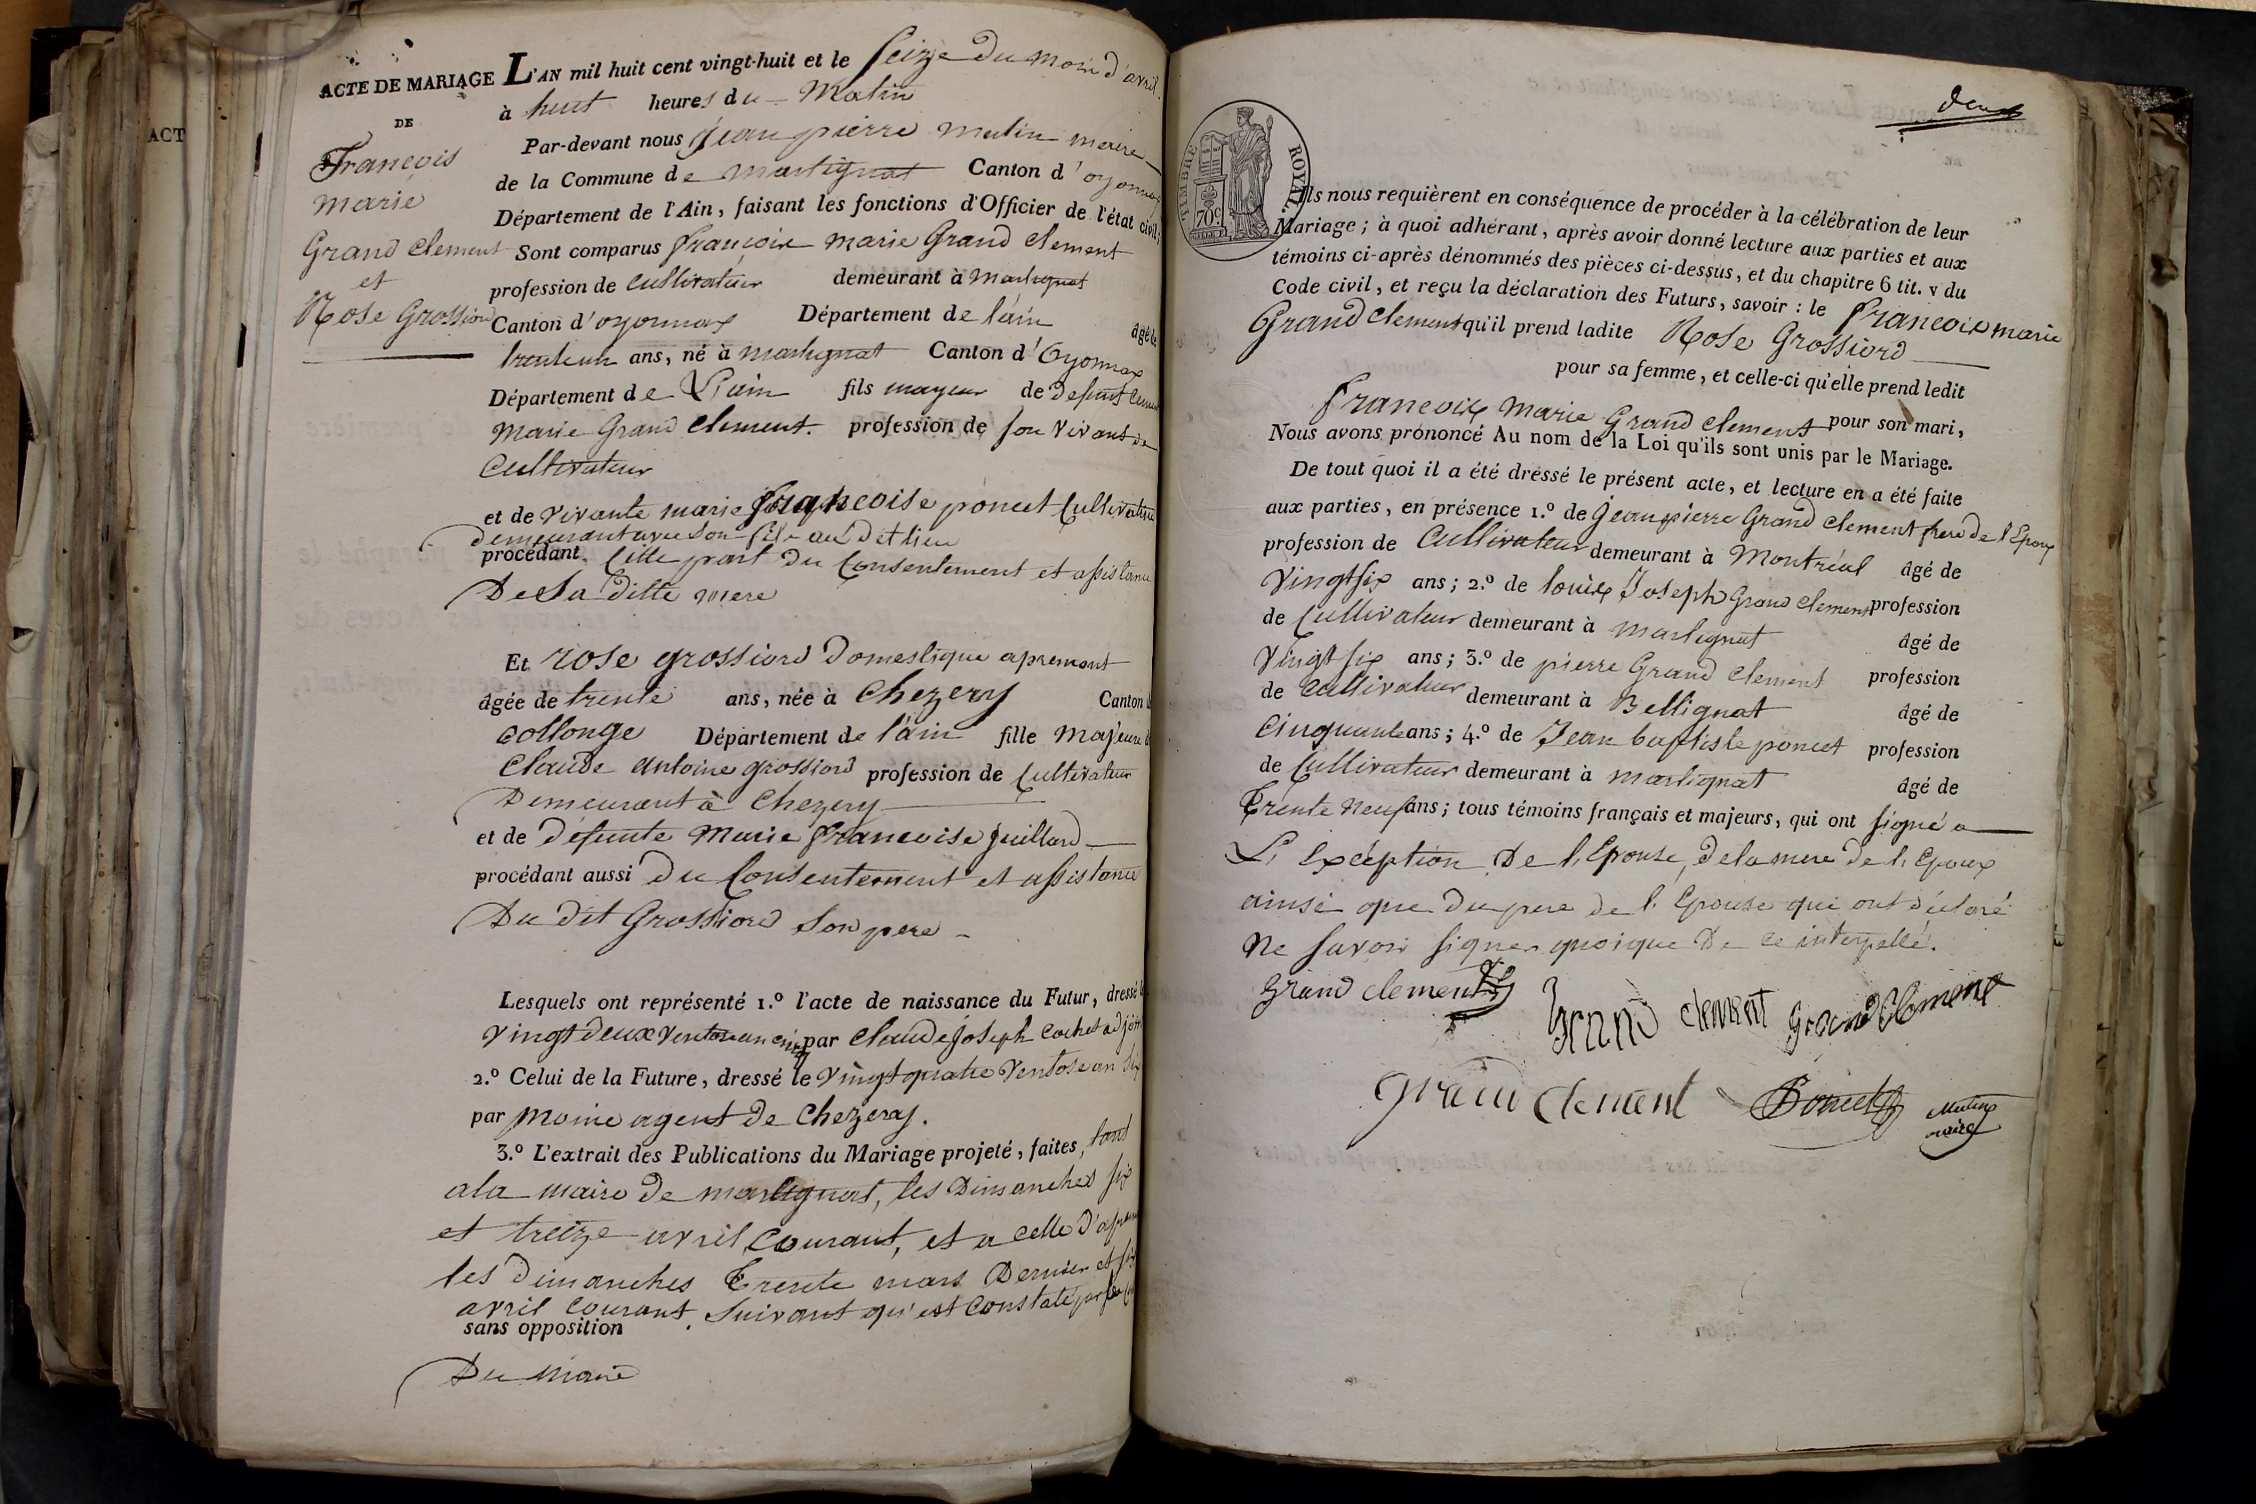 ACT
ACTE DE MARIAGE
DE
François
marie
Grand Clement
et
Rose Grossiord
L'AN mil huit cent vingt-huit et le Seize du mois d'avril
à huit heures du Matin
Par-devant nous jean pierre mutin maire
de la Commune de martignat Canton d'oyonnax
Département de l'Ain, faisant les fonctions d'Officier de l'état civil;
Sont comparus françois marie Grand Clement
profession de Cultivateur demeurant à Martignat
Canton d'oyonnax Département de l'ain âgé de
trente un ans, né à martignat Canton d'Oyonnax
Département de L'ain fils mayeur de Defunt Claude
Marie Grand Clement. profession de son vivant de
Cultivateur
et de vivante marie françoise poncet Cultivatrice
demeurant avec son fils au dit lieu
procédant Cette part du Consentement et assistance
De Sa ditte mere
Et rose grossiord Domestique apremont
âgée de trente ans, née à Chezery Canton de
Collonge Département de l'ain fille Majeure de
Claude antoine grossiord profession de Cultivateur
Demeurant à Chezery
et de défunte Marie françoise juillard
procédant aussi du Consentement et assistance
Du dit Grossiord Son pere
Lesquels ont représenté 1.º l'acte de naissance du Futur, dressé le
Vingt deux Ventose an cinq par Claude joseph Cochet adjoint
2.º Celui de la Future, dressé le Vingt quatre Ventose an Six
par Moine agent de Chezery.
3.º L'extrait des Publications du Mariage projeté, faites, tant
ala maire de martignat, les Dimanches Six
et treize avril Courant, et a celle d'apremont
les dimanches Trente mars Dernier et Six
avril Courant. Suivant qu'est Constaté par
sans opposition
Du Maire
deux
TIMBRE ROYAL
70c
Ils nous requièrent en conséquence de procéder à la célébration de leur
Mariage; à quoi adhérant, après avoir donné lecture aux parties et aux
témoins ci-après dénommés des pièces ci-dessus, et du chapitre 6 tit. v du
Code civil, et reçu la déclaration des Futurs, savoir : le François marie
Grand Clement qu'il prend ladite Rose Grossiord
pour sa femme, et celle-ci qu'elle prend ledit
François Marie Grand Clement pour son mari,
Nous avons prononcé Au nom de la Loi qu'ils sont unis par le Mariage.
De tout quoi il a été dressé le présent acte, et lecture en a été faite
aux parties, en présence 1.º de jean pierre Grand Clement frere de l'Epoux
profession de Cultivateur demeurant à Montréal âgé de
Vingt six ans; 2.º de louis Joseph Grand Clement profession
de Cultivateur demeurant à martignat âgé de
Vingt six ans; 3.º de pierre Grand Clement profession
de Cultivateur demeurant à Bellignat âgé de
Cinquante ans; 4.º de Jean baptiste poncet profession
de Cultivateur demeurant à martignat âgé de
Trente Neuf ans; tous témoins français et majeurs, qui ont signé a
L'Exception De l'Epouse, de la mere de l'Epoux
ainsi que du pere de l'Epouse qui ont déclaré
Ne Savoir signer quoique De ce interpellé.
Grand Clement Grand Clement Grand Clement
Grand Clement Poncet Mutin
maire